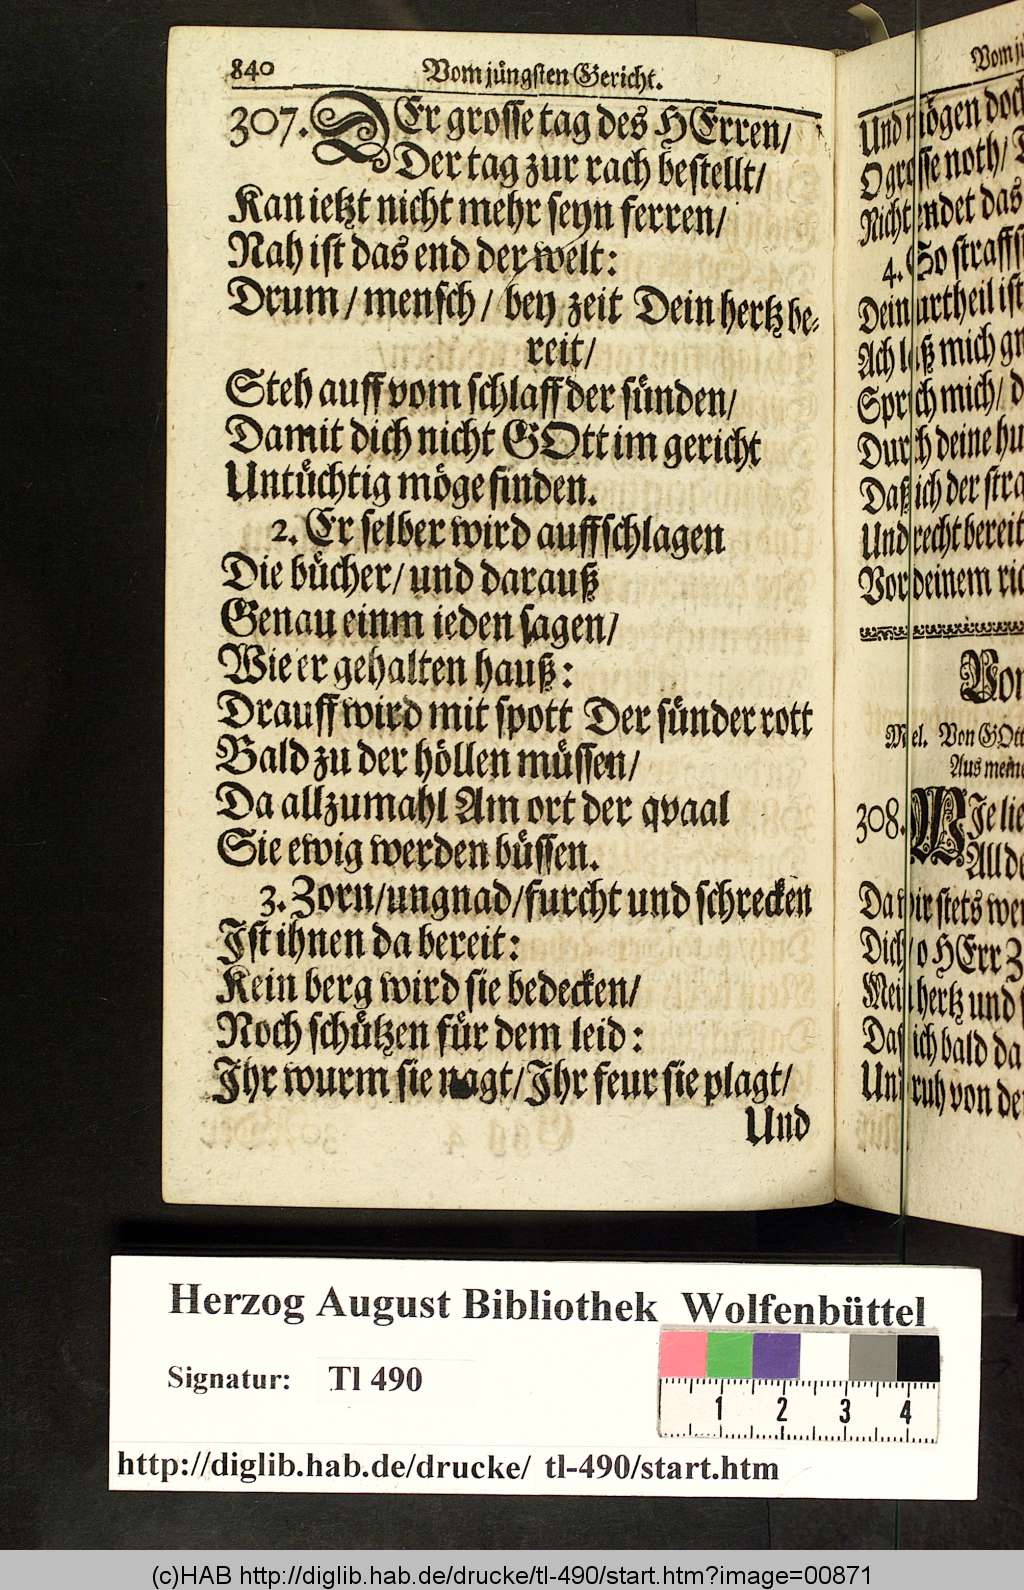 840 Vom jüngsten Gericht.
307. DEr grosse tag des HErren/
Der tag zur rach bestellt/
Kan ietzt nicht mehr seyn ferren/
Nah ist das end der welt:
Drum/ mensch/ bey zeit Dein hertz be-
reit/
Steh auff vom schlaff der sünden/
Damit dich nicht GOtt im gericht
Untüchtig möge finden.
2. Er selber wird auffschlagen
Die bücher/ und darauß
Genau einm ieden sagen/
Wie er gehalten hauß:
Drauff wird mit spott Der sünder rott
Bald zu der höllen müssen/
Da allzumahl Am ort der qvaal
Sie ewig werden büssen.
3. Zorn/ungnad/furcht und schrecken
Ist ihnen da bereit:
Kein berg wird sie bedecken/
Noch schützen für dem leid:
Ihr wurm sie nagt/Ihr feur sie plagt/
Und
Vom
Und mögen doch
O grosse noth/
Nicht endet das
4. So
Dein urtheil ist
Ach laß mich
Sprich mich/
Durch deine
Daß ich der
Und recht bereit
Vor deinem
Mel. Von GOtt
Aus meine
308. WJe
All
Da wir stets
Dich/ o HErr
Mein hertz und
Daß ich bald da
Und ruh von
Herzog August Bibliothek Wolfenbüttel
Signatur: Tl 490
1 2 3 4
http://diglib.hab.de/drucke/ tl-490/start.htm
(c)HAB http://diglib.hab.de/drucke/tl-490/start.htm?image=00871